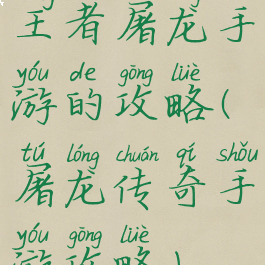 王者屠龙手
yóu de gōng lüè
游的攻略(
tú lóng chuán qí shǒu
屠龙传奇手
yóu gōng lüè
游攻略)